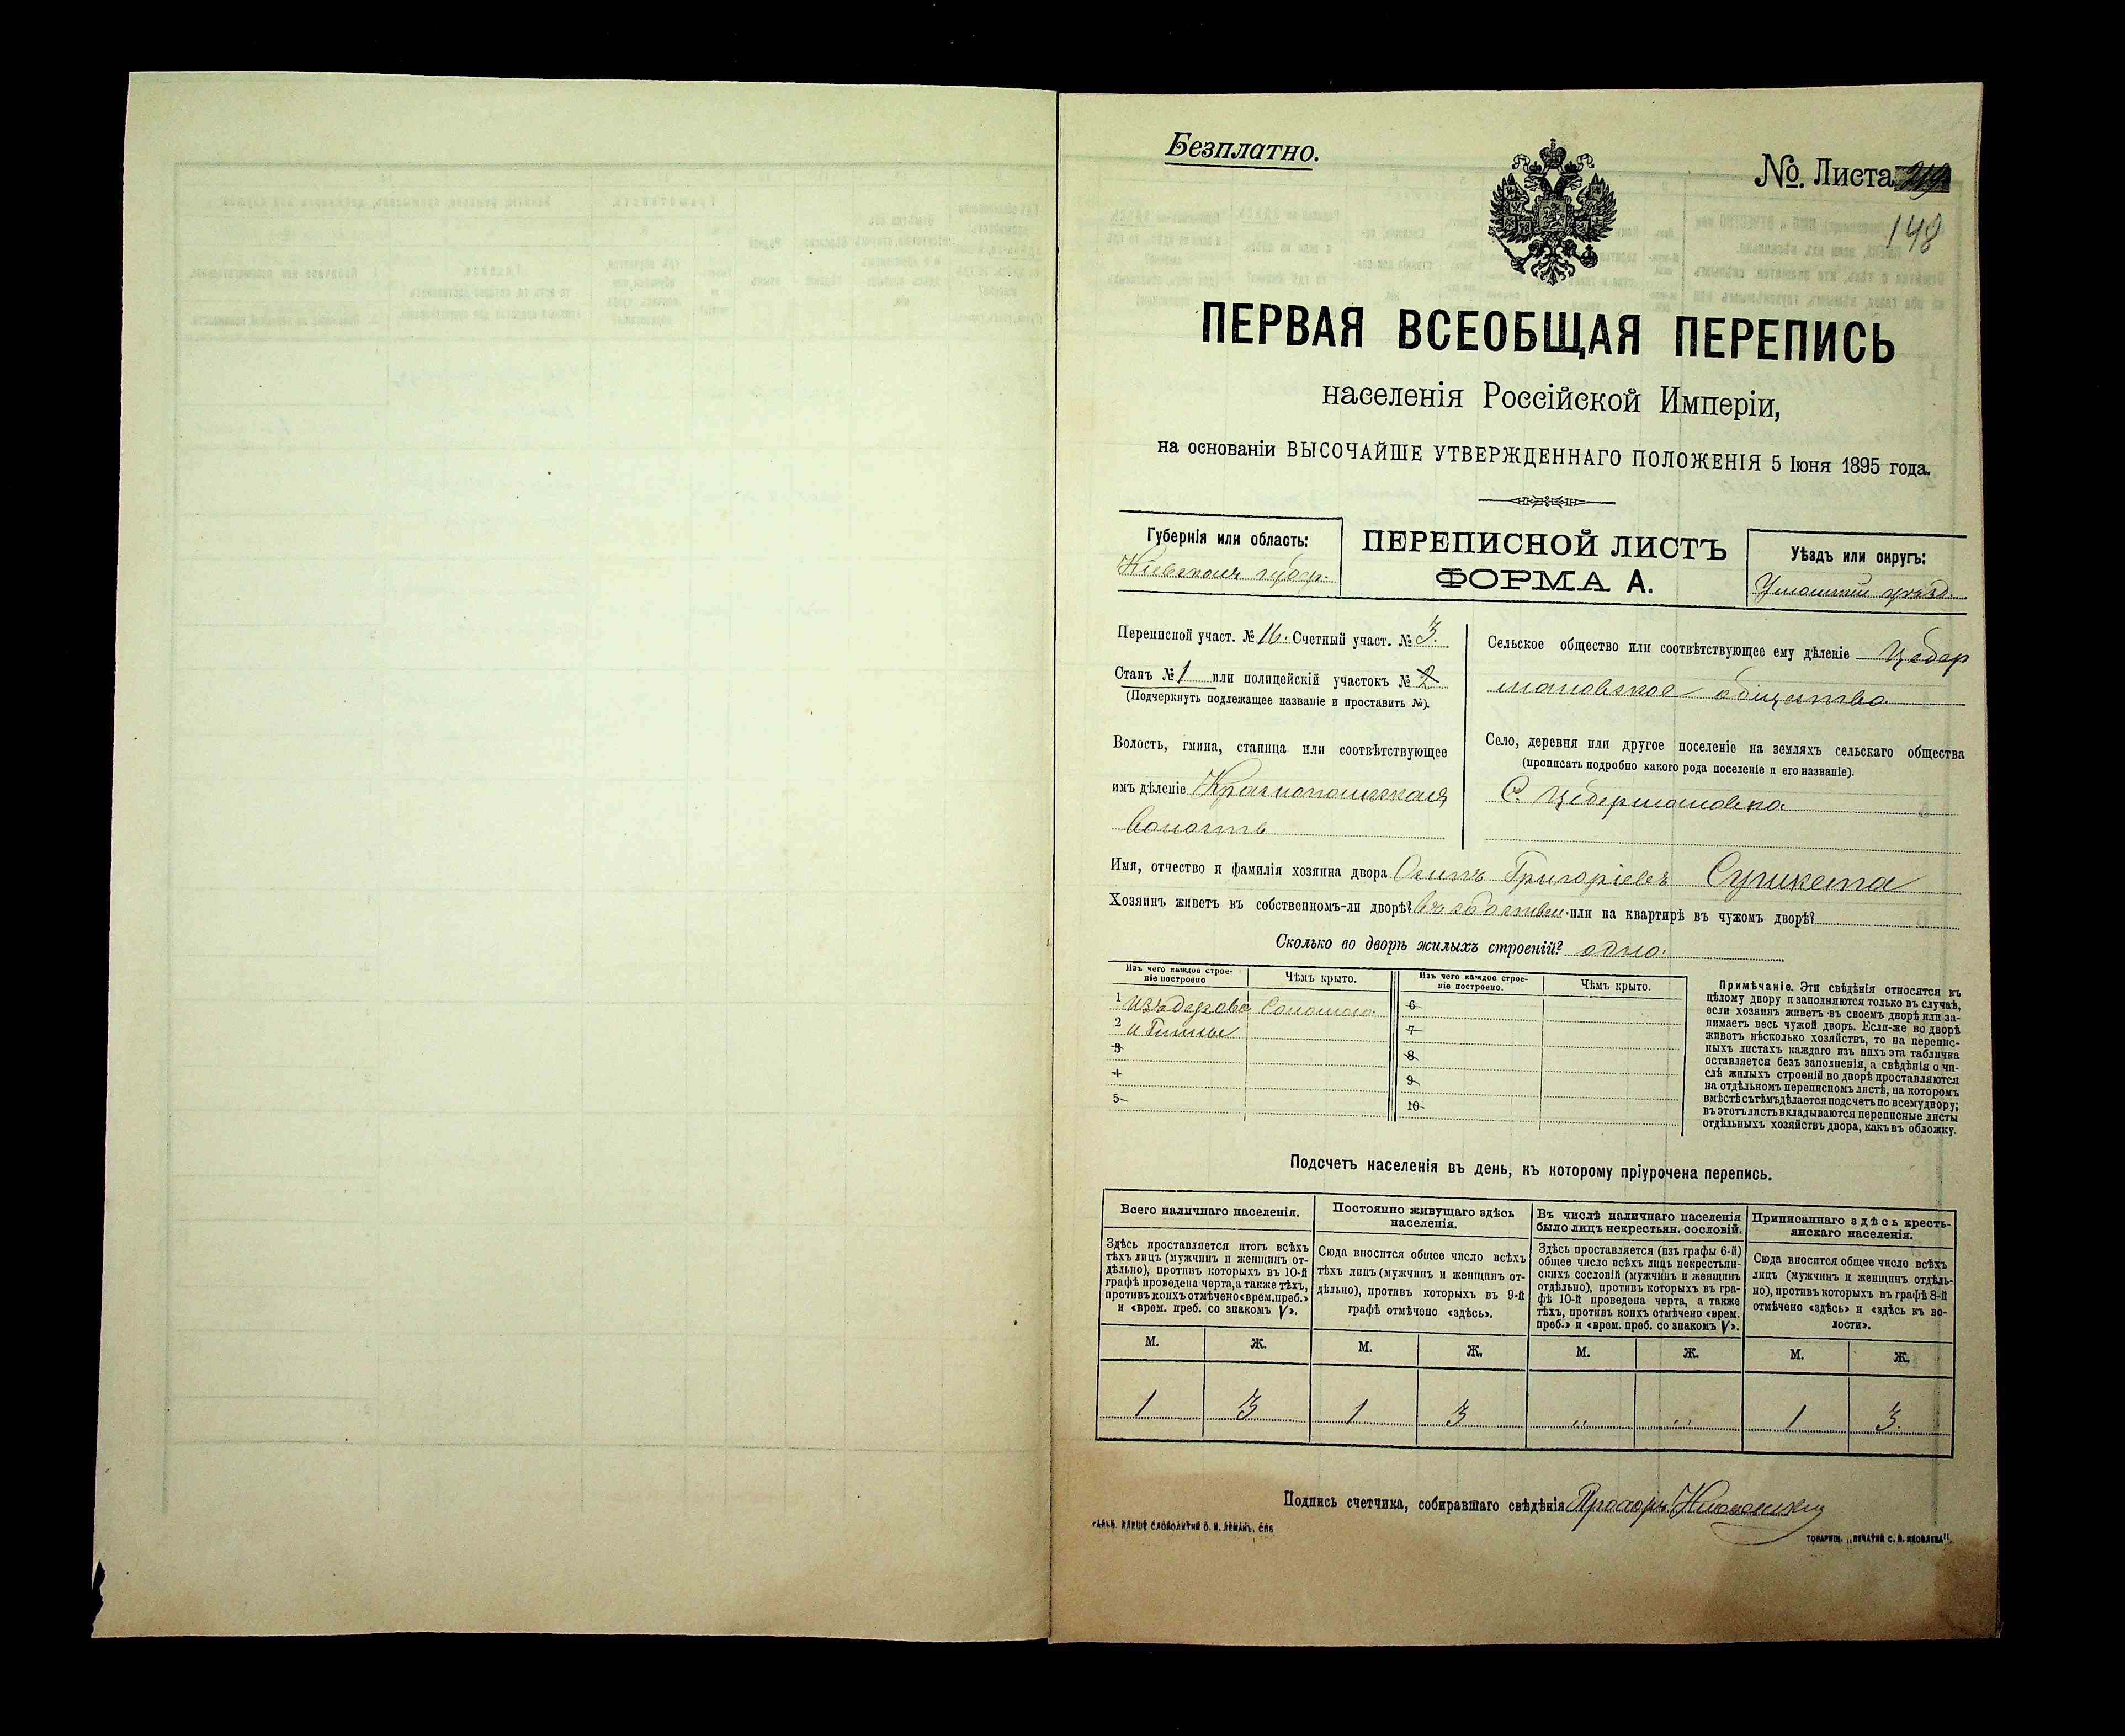 Безплатно.
№. Листа
148
ПЕРВАЯ ВСЕОБЩАЯ ПЕРЕПИСЬ
населенія Россійской Имперіи,
на основаніи ВЫСОЧАЙШЕ УТВЕРЖДЕННАГО ПОЛОЖЕНІЯ 5 Іюня 1895 года.
Губернія или область:
Кіевская губер.
ПЕРЕПИСНОЙ ЛИСТЪ
ФОРМА А.
Уѣздъ или округъ:
Уманскій уѣзд.
Переписной участ. № 16. Счетный участ. № 3.
Станъ № 1 или полицейскій участокъ № 2
(Подчеркнуть подлежащее названіе и проставить №).
Волость, гмина, станица или соотвѣтствующее
имъ дѣленіе Краснопольская
волость
Сельское общество или соотвѣтствующее ему дѣленіе Цебер
мановское общество
Село, деревня или другое поселеніе на земляхъ сельскаго общества
(прописать подробно какого рода поселеніе и его названіе).
С. Цебермановка
Имя, отчество и фамилія хозяина двора Осипъ Григоріевъ
Хозяинъ живетъ въ собственномъ-ли дворѣ? въ собствен. или на квартирѣ въ чужомъ дворѣ?
Сколько во дворѣ жилыхъ строеній? одно.
Изъ чего каждое строе-
ніе построено
Чѣмъ крыто.
Изъ чего каждое строе-
ніе построено.
Чѣмъ крыто.
1 изъ дерева Соломою
2 и Глины
3
4
5
6
7
8
9
10
Примѣчаніе. Эти свѣдѣнія относятся къ
цѣлому двору и заполняются только въ случаѣ,
если хозяинъ живетъ въ своемъ дворѣ или за-
нимаетъ весь чужой дворъ. Если-же во дворѣ
живетъ нѣсколько хозяйствъ, то на перепис-
ныхъ листахъ каждаго изъ нихъ эта табличка
оставляется безъ заполненія, а свѣдѣнія о чи-
слѣ жилыхъ строеній во дворѣ проставляются
на отдѣльномъ переписномъ листѣ, на которомъ
вмѣстѣ съ тѣмъ дѣлается подсчетъ по всему двору;
въ этотъ листъ вкладываются переписные листы
отдѣльныхъ хозяйствъ двора, какъ въ обложку.
Подсчетъ населенія въ день, къ которому пріурочена перепись.
Всего наличнаго населенія.
Здѣсь проставляется итогъ всѣхъ
тѣхъ лицъ (мужчинъ и женщинъ от-
дѣльно), противъ которыхъ въ 10-й
графѣ проведена черта, а также тѣхъ,
противъ коихъ отмѣчено «врем. преб.»
и «врем. преб. со знакомъ V».
Постоянно живущаго здѣсь
населенія.
Сюда вносится общее число всѣхъ
тѣхъ лицъ (мужчинъ и женщинъ от-
дѣльно), противъ которыхъ въ 9-й
графѣ отмѣчено «здѣсь».
Въ числѣ наличнаго населенія
было лицъ некрестьян. сословій.
Здѣсь проставляется (изъ графы 6-й)
общее число всѣхъ лицъ некрестьян-
скихъ сословій (мужчинъ и женщинъ
отдѣльно), противъ которыхъ въ гра-
фѣ 10-й проведена черта, а также
тѣхъ, противъ коихъ отмѣчено «врем.
преб.» и «врем. преб. со знакомъ V».
Приписаннаго здѣсь кресть-
янскаго населенія.
Сюда вносится общее число всѣхъ
лицъ (мужчинъ и женщинъ отдѣль-
но), противъ которыхъ въ графѣ 8-й
отмѣчено «здѣсь» и «здѣсь къ во-
лости».
М. Ж. М. Ж. М. Ж. М. Ж.
1 3 1 3 „ „ 1 3.
Подпись счетчика, собиравшаго свѣдѣнія Прохоръ
ТОВАРИЩ. „ПЕЧАТНЯ С. П. ЯКОВЛЕВА".